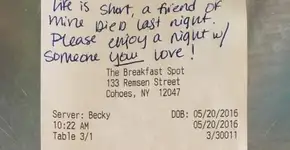 Life is short, a friend of
mine died last night.
Please enjoy a night w/
someone you love!
The Breakfast Spot
133 Remsen Street
Cohoes, NY 12047
Server: Becky DOB: 05/20/2016
10:22 AM 05/20/2016
Table 3/1 3/30011